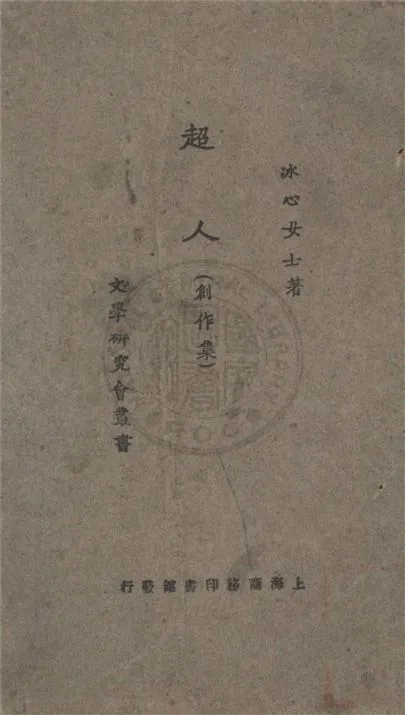 冰心女士著
超人
(創作集)
文學研究會叢書
上海商務印書館發行